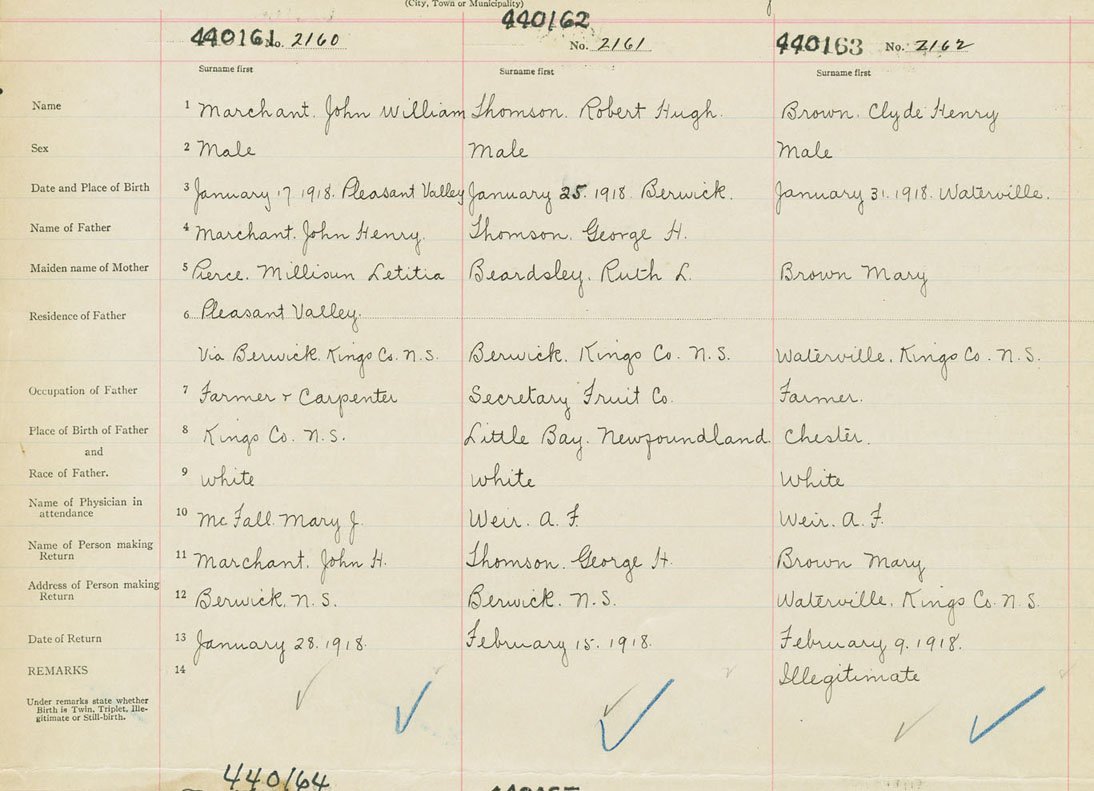 (City, Town or Municipality)
440161 No. 2160 440162 No. 2161 440163 No. 2162
Surname first Surname first Surname first
Name 1 Marchant. John William Thomson. Robert Hugh. Brown. Clyde Henry
Sex 2 Male Male Male
Date and Place of Birth 3 January 17 1918. Pleasant Valley January 25. 1918. Berwick. January 31. 1918. Waterville.
Name of Father 4 Marchant. John Henry. Thomson. George H.
Maiden name of Mother 5 Pierce. Millisun Letitia Beardsley. Ruth L. Brown Mary
Residence of Father 6 Pleasant Valley.
Via Berwick. Kings Co. N.S. Berwick. Kings Co. N.S. Waterville. Kings Co. N.S.
Occupation of Father 7 Farmer & Carpenter Secretary Fruit Co. Farmer.
Place of Birth of Father 8 Kings Co. N.S. Little Bay. Newfoundland. Chester.
and
Race of Father. 9 White White White
Name of Physician in
attendance 10 McFall Mary J. Weir. A. F. Weir. A. F.
Name of Person making
Return 11 Marchant. John H. Thomson. George H. Brown Mary
Address of Person making
Return 12 Berwick. N.S. Berwick. N.S. Waterville. Kings Co. N.S.
Date of Return 13 January 28. 1918. February 15. 1918. February 9. 1918.
REMARKS 14 Illegitimate
Under remarks state whether
Birth is Twin, Triplet, Ille-
gitimate or Still-birth.
440164